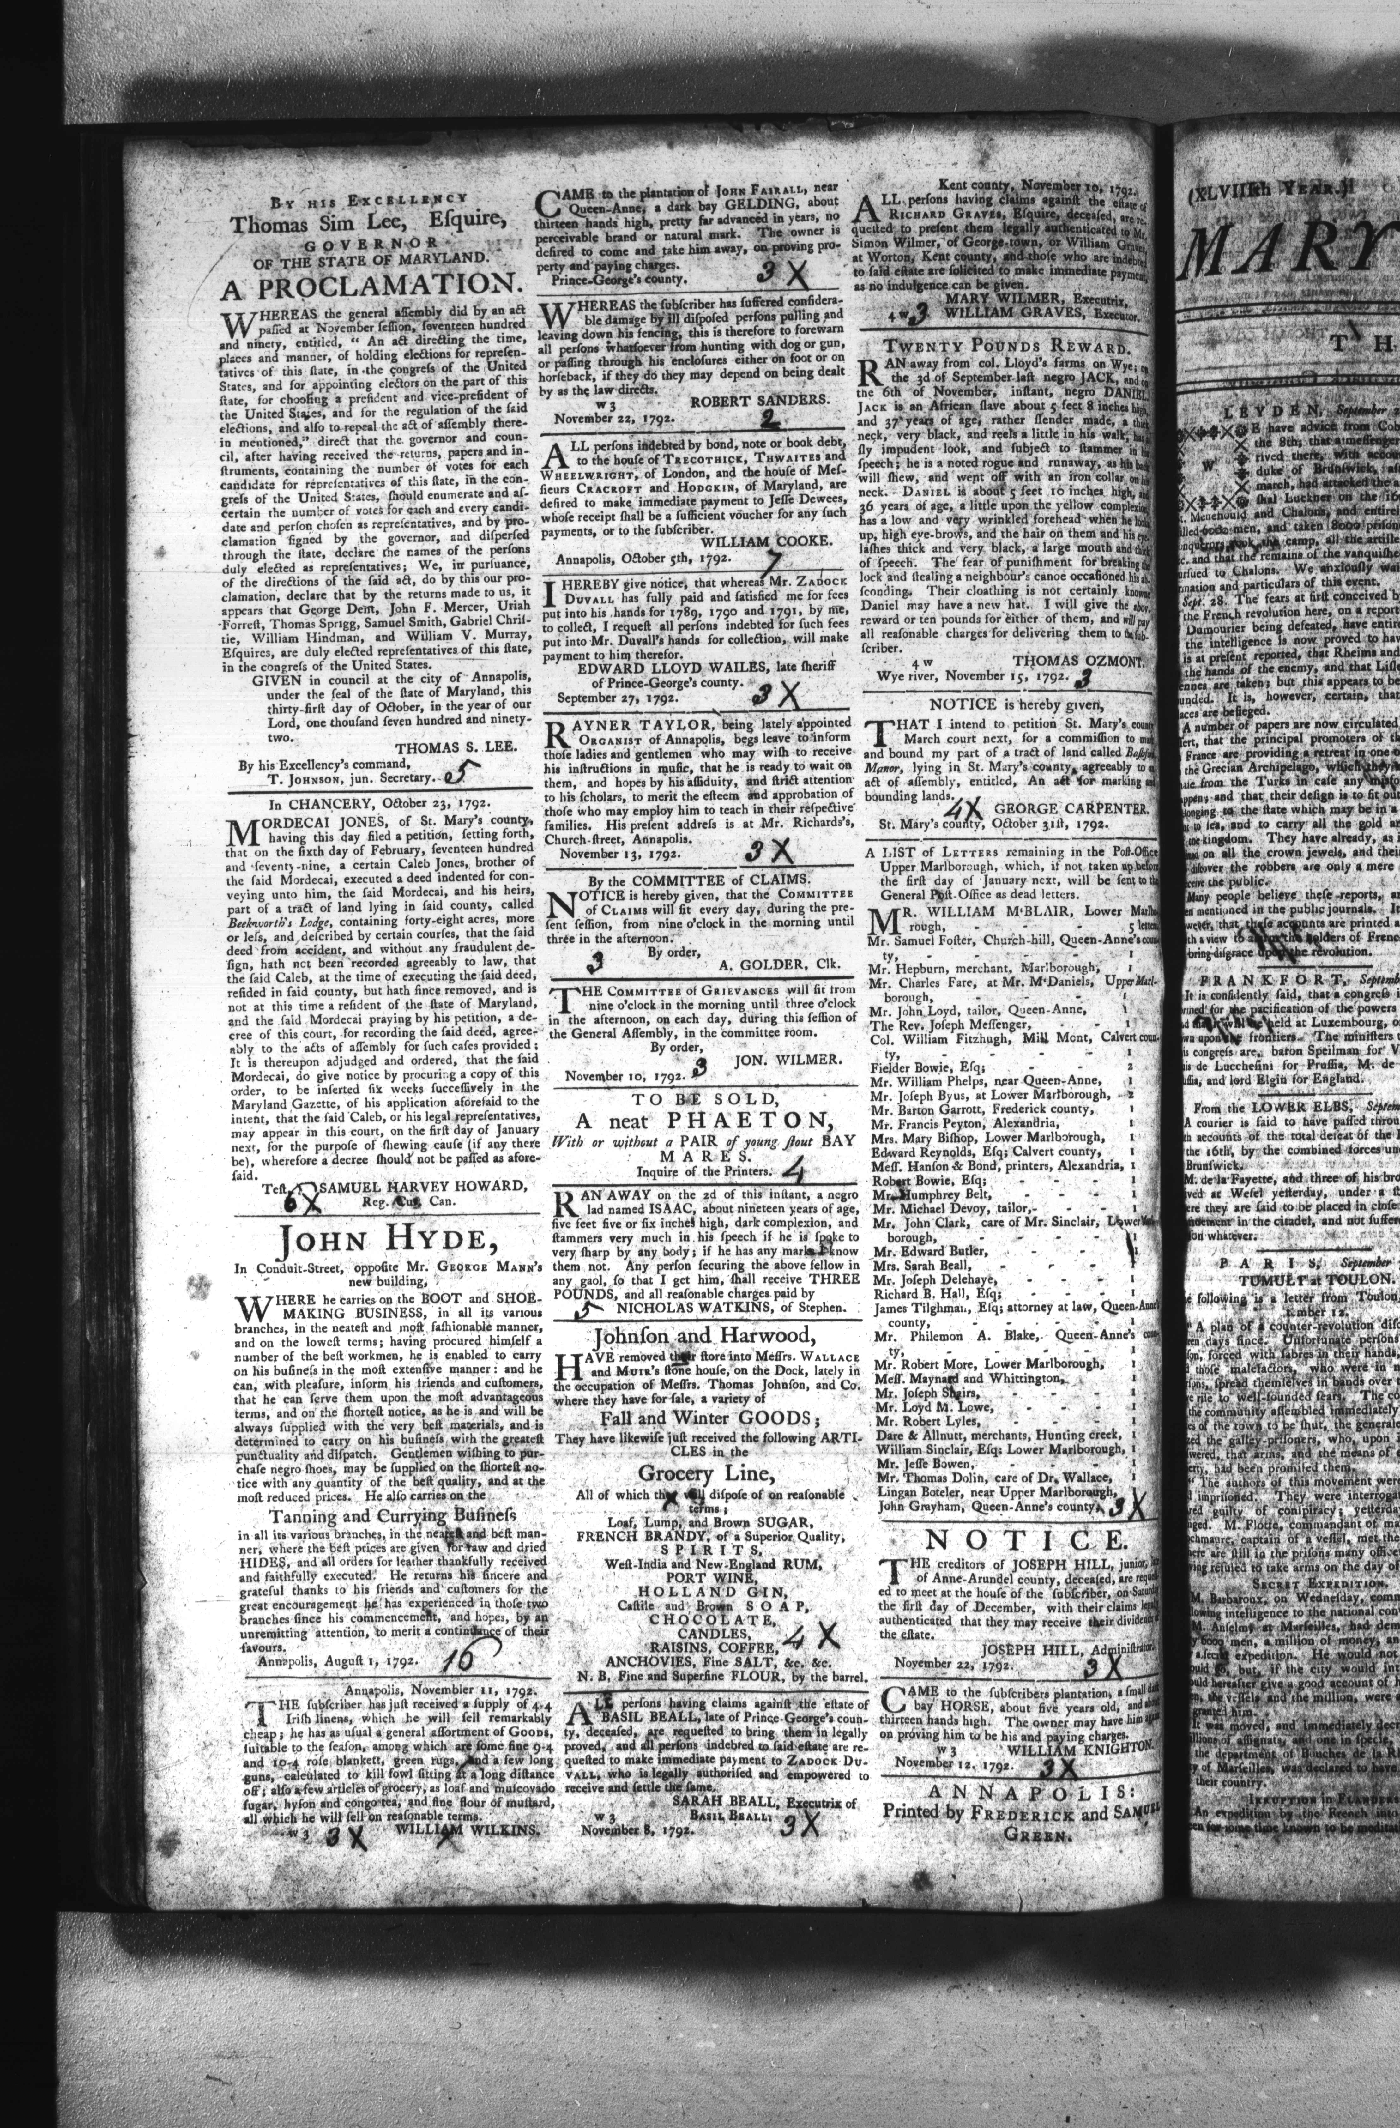 BY HIS EXCELLENCY
Thomas Sim Lee, Eſquire,
GOVERNOR
OF THE STATE OF MARYLAND.
A PROCLAMATION.
WHEREAS the general aſſembly did by an act
paſſed at November ſeſſion, ſeventeen hundred
and ninety, entitled, “ An act directing the time,
places and manner, of holding elections for repreſen-
tatives of this ſtate, in the congreſs of the United
States, and for appointing electors on the part of this
ſtate, for chooſing a preſident and vice-preſident of
the United States, and for the regulation of the ſaid
elections, and alſo to repeal the act of aſſembly there-
in mentioned,” direct that the governor and coun-
cil, after having received the returns, papers and in-
ſtruments, containing the number of votes for each
candidate for repreſentatives of this ſtate, in the con-
greſs of the United States, ſhould enumerate and aſ-
certain the number of votes for each and every candi-
date and perſon choſen as repreſentatives, and by pro-
clamation ſigned by the governor, and diſperſed
through the ſtate, declare the names of the perſons
duly elected as repreſentatives; We, in purſuance,
of the directions of the ſaid act, do by this our pro-
clamation, declare that by the returns made to us, it
appears that George Dent, John F. Mercer, Uriah
Forreſt, Thomas Sprigg, Samuel Smith, Gabriel Chriſ-
tie, William Hindman, and William V. Murray,
Eſquires, are duly elected repreſentatives of this ſtate,
in the congreſs of the United States.
GIVEN in council at the city of Annapolis,
under the ſeal of the ſtate of Maryland, this
thirty-firſt day of October, in the year of our
Lord, one thouſand ſeven hundred and ninety-
two.
THOMAS S. LEE.
By his Excellency's command,
T. JOHNSON, jun. Secretary. 5
In CHANCERY, October 23, 1792.
MORDECAI JONES, of St. Mary's county,
having this day filed a petition, ſetting forth,
that on the ſixth day of February, ſeventeen hundred
and ſeventy-nine, a certain Caleb Jones, brother of
the ſaid Mordecai, executed a deed indented for con-
veying unto him, the ſaid Mordecai, and his heirs,
part of a tract of land lying in ſaid county, called
Beckworth's Lodge, containing forty-eight acres, more
or leſs, and deſcribed by certain courſes, that the ſaid
deed from accident, and without any fraudulent de-
ſign, hath not been recorded agreeably to law, that
the ſaid Caleb, at the time of executing the ſaid deed,
reſided in ſaid county, but hath ſince removed, and is
not at this time a reſident of the ſtate of Maryland,
and the ſaid Mordecai praying by his petition, a de-
cree of this court, for recording the ſaid deed, agree-
ably to the acts of aſſembly for ſuch caſes provided;
It is thereupon adjudged and ordered, that the ſaid
Mordecai, do give notice by procuring a copy of this
order, to be inſerted ſix weeks ſucceſſively in the
Maryland Gazette, of his application aforeſaid to the
intent, that the ſaid Caleb, or his legal repreſentatives,
may appear in this court, on the firſt day of January
next, for the purpoſe of ſhewing cauſe (if any there
be), wherefore a decree ſhould not be paſſed as afore-
ſaid.
Teſt. SAMUEL HARVEY HOWARD,
6X Reg. Cur. Can.
JOHN HYDE,
In Conduit-Street, oppoſite Mr. GEORGE MANN's
new building,
WHERE he carries on the BOOT and SHOE-
MAKING BUSINESS, in all its various
branches, in the neateſt and moſt faſhionable manner,
and on the loweſt terms; having procured himſelf a
number of the beſt workmen, he is enabled to carry
on his buſineſs in the moſt extenſive manner: and he
can, with pleaſure, inform his friends and cuſtomers,
that he can ſerve them upon the moſt advantageous
terms, and on the ſhorteſt notice, as he is and will be
always ſupplied with the very beſt materials, and is
determined to carry on his buſineſs with the greateſt
punctuality and diſpatch. Gentlemen wiſhing to pur-
chaſe negro ſhoes, may be ſupplied on the ſhorteſt no-
tice with any quantity of the beſt quality, and at the
moſt reduced prices. He alſo carries on the
Tanning and Currying Buſineſs
in all its various branches, in the neateſt and beſt man-
ner, where the beſt prices are given for raw and dried
HIDES, and all orders for leather thankfully received
and faithfully executed. He returns his ſincere and
grateful thanks to his friends and cuſtomers for the
great encouragement he has experienced in thoſe two
branches ſince his commencement, and hopes, by an
unremitting attention, to merit a continuance of their
favours.
Annapolis, Auguſt 1, 1792. 16
Annapolis, November 11, 1792.
THE ſubſcriber has juſt received a ſupply of 4-4
Iriſh linens, which he will ſell remarkably
cheap; he has as uſual a general aſſortment of GOODS,
ſuitable to the ſeaſon, among which are ſome fine 9-4
and 10-4 roſe blankett, green rugs, and a few long
guns, calculated to kill fowl ſitting at a long diſtance
off; alſo a few articles of grocery, as loaf and muſcovado
ſugar, hyſon and congo tea, and fine flour of muſtard,
all which he will ſell on reaſonable terms.
w 3 3X WILLIAM WILKINS.
CAME to the plantation of JOHN FAIRALL, near
Queen-Anne, a dark bay GELDING, about
thirteen hands high, pretty far advanced in years, no
perceivable brand or natural mark. The owner is
deſired to come and take him away, on proving pro-
perty and paying charges.
Prince-George's county. 3X
WHEREAS the ſubſcriber has ſuffered conſidera-
ble damage by ill diſpoſed perſons pulling and
leaving down his fencing, this is therefore to forewarn
all perſons whatſoever from hunting with dog or gun,
or paſſing through his encloſures either on foot or on
horſeback, if they do they may depend on being dealt
by as the law directs.
w 3 ROBERT SANDERS.
November 22, 1792. 2
ALL perſons indebted by bond, note or book debt,
to the houſe of TRECOTHICK, THWAITES and
WHEELWRIGHT, of London, and the houſe of Meſ-
ſieurs CRACROFT and HODGKIN, of Maryland, are
deſired to make immediate payment to Jeſſe Dewees,
whoſe receipt ſhall be a ſufficient voucher for any ſuch
payments, or to the ſubſcriber.
WILLIAM COOKE.
Annapolis, October 5th, 1792. 7
I HEREBY give notice, that whereas Mr. ZADOCK
DUVALL has fully paid and ſatisfied me for fees
put into his hands for 1789, 1790 and 1791, by me,
to collect, I requeſt all perſons indebted for ſuch fees
put into Mr. Duvall's hands for collection, will make
payment to him therefor.
EDWARD LLOYD WAILES, late ſheriff
of Prince-George's county.
September 27, 1792. 3X
RAYNER TAYLOR, being lately appointed
ORGANIST of Annapolis, begs leave to inform
thoſe ladies and gentlemen who may wiſh to receive
his inſtructions in muſic, that he is ready to wait on
them, and hopes by his aſſiduity, and ſtrict attention
to his ſcholars, to merit the eſteem and approbation of
thoſe who may employ him to teach in their reſpective
families. His preſent addreſs is at Mr. Richards's,
Church-ſtreet, Annapolis.
November 13, 1792. 3X
By the COMMITTEE of CLAIMS.
NOTICE is hereby given, that the COMMITTEE
of CLAIMS will ſit every day, during the pre-
ſent ſeſſion, from nine o'clock in the morning until
three in the afternoon.
By order,
3 A. GOLDER, Clk.
THE COMMITTEE of GRIEVANCES will ſit from
nine o'clock in the morning until three o'clock
in the afternoon, on each day, during this ſeſſion of
the General Aſſembly, in the committee room.
By order,
JON. WILMER.
November 10, 1792. 3
TO BE SOLD,
A neat PHAETON,
With or without a PAIR of young ſtout BAY
MARES.
Inquire of the Printers. 4
RAN AWAY on the 2d of this inſtant, a negro
lad named ISAAC, about nineteen years of age,
five feet five or ſix inches high, dark complexion, and
ſtammers very much in his ſpeech if he is ſpoke to
very ſharp by any body; if he has any marks I know
them not. Any perſon ſecuring the above fellow in
any gaol, ſo that I get him, ſhall receive THREE
POUNDS, and all reaſonable charges paid by
5 NICHOLAS WATKINS, of Stephen.
Johnſon and Harwood,
HAVE removed their ſtore into Meſſrs. WALLACE
and MUIR's ſtone houſe, on the Dock, lately in
the occupation of Meſſrs. Thomas Johnſon, and Co.
where they have for ſale, a variety of
Fall and Winter GOODS;
They have likewiſe juſt received the following ARTI-
CLES in the
Grocery Line,
All of which they will diſpoſe of on reaſonable
terms;
Loaf, Lump, and Brown SUGAR,
FRENCH BRANDY, of a Superior Quality,
SPIRITS,
Weſt-India and New-England RUM,
PORT WINE,
HOLLAND GIN,
Caſtile and Brown SOAP,
CHOCOLATE,
CANDLES,
RAISINS, COFFEE, 4X
ANCHOVIES, Fine SALT, &c. &c.
N. B. Fine and Superfine FLOUR, by the barrel.
ALL perſons having claims againſt the eſtate of
BASIL BEALL, late of Prince-George's coun-
ty, deceaſed, are requeſted to bring them in legally
proved, and all perſons indebted to ſaid eſtate are re-
queſted to make immediate payment to ZADOCK DU-
VALL, who is legally authoriſed and empowered to
receive and ſettle the ſame.
SARAH BEALL, Executrix of
w 3 BASIL BEALL.
November 8, 1792. 3X
Kent county, November 10, 1792.
ALL perſons having claims againſt the eſtate of
RICHARD GRAVES, Eſquire, deceaſed, are re-
queſted to preſent them legally authenticated to Mr.
Simon Wilmer, of George-town, or William Graves,
at Worton, Kent county, and thoſe who are indebted
to ſaid eſtate are ſolicited to make immediate payment,
as no indulgence can be given.
MARY WILMER, Executrix,
4 w 3 WILLIAM GRAVES, Executor.
TWENTY POUNDS REWARD.
RAN away from col. Lloyd's farms on Wye; on
the 3d of September laſt negro JACK, and on
the 6th of November, inſtant, negro DANIEL.
JACK is an African ſlave about 5 feet 8 inches high,
and 37 years of age, rather ſlender made, a thick
neck, very black, and reels a little in his walk, has a
ſly impudent look, and ſubject to ſtammer in his
ſpeech; he is a noted rogue and runaway, as his back
will ſhew, and went off with an iron collar on his
neck. DANIEL is about 5 feet 10 inches high, and
36 years of age, a little upon the yellow complexion,
has a low and very wrinkled forehead when he looks
up, high eye-brows, and the hair on them and his eye-
laſhes thick and very black, a large mouth and thick
of ſpeech. The fear of puniſhment for breaking the
lock and ſtealing a neighbour's canoe occaſioned his ab-
ſconding. Their cloathing is not certainly known
Daniel may have a new hat. I will give the above
reward or ten pounds for either of them, and will pay
all reaſonable charges for delivering them to the ſub-
ſcriber.
4 w THOMAS OZMONT.
Wye river, November 15, 1792. 3
NOTICE is hereby given,
THAT I intend to petition St. Mary's county
March court next, for a commiſſion to mark
and bound my part of a tract of land called Baſhford
Manor, lying in St. Mary's county, agreeably to an
act of aſſembly, entitled, An act for marking and
bounding lands.
4X GEORGE CARPENTER.
St. Mary's county, October 31ſt, 1792.
A LIST of LETTERS remaining in the Poſt-Office
Upper Marlborough, which, if not taken up before
the firſt day of January next, will be ſent to the
General Poſt-Office as dead letters.
MR. WILLIAM M'BLAIR, Lower Marlbo-
rough, 5 letters
Mr. Samuel Foſter, Church-hill, Queen-Anne's coun-
ty, - - - 1
Mr. Hepburn, merchant, Marlborough, 1
Mr. Charles Fare, at Mr. M'Daniels, Upper Marl-
borough, - - - 1
Mr. John Loyd, tailor, Queen-Anne, 1
The Rev. Joſeph Meſſenger, - - 1
Col. William Fitzhugh, Mill Mont, Calvert coun-
ty, - - - 1
Fielder Bowie, Eſq; - - 2
Mr. William Phelps, near Queen-Anne, 1
Mr. Joſeph Byus, at Lower Marlborough, - 2
Mr. Barton Garrott, Frederick county, 1
Mr. Francis Peyton, Alexandria, 1
Mrs. Mary Biſhop, Lower Marlborough, 1
Edward Reynolds, Eſq; Calvert county, 1
Meſſ. Hanſon & Bond, printers, Alexandria, 1
Robert Bowie, Eſq; 1
Mr. Humphrey Belt, 1
Mr. Michael Devoy, tailor, - 1
Mr. John Clark, care of Mr. Sinclair, Lower Marl-
borough, - - -
Mr. Edward Butler, - -
Mrs. Sarah Beall, - - 1
Mr. Joſeph Delehaye, - - 1
Richard B. Hall, Eſq; - - 1
James Tilghman, Eſq; attorney at law, Queen-Anne's
county, - - - 1
Mr. Philemon A. Blake, Queen-Anne's coun-
ty, - - - 1
Mr. Robert More, Lower Marlborough, 1
Meſſ. Maynard and Whittington, 1
Mr. Joſeph Stairs, - - 1
Mr. Loyd M. Lowe, - - 1
Mr. Robert Lyles, - - 1
Dare & Allnutt, merchants, Hunting creek, 1
William Sinclair, Eſq; Lower Marlborough, 1
Mr. Jeſſe Bowen, - - 1
Mr. Thomas Dolin, care of Dr. Wallace, 1
Lingan Boteler, near Upper Marlborough,
John Grayham, Queen-Anne's county, 3X
NOTICE.
THE creditors of JOSEPH HILL, junior, late
of Anne-Arundel county, deceaſed, are requeſt-
ed to meet at the houſe of the ſubſcriber, on Saturday
the firſt day of December, with their claims legally
authenticated that they may receive their dividend of
the eſtate.
JOSEPH HILL, Adminiſtrator.
November 22, 1792. 3X
CAME to the ſubſcribers plantation, a ſmall dark
bay HORSE, about five years old, and about
thirteen hands high. The owner may have him again
on proving him to be his and paying charges.
w 3 WILLIAM KNIGHTON.
November 12, 1792. 3X
ANNAPOLIS:
Printed by FREDERICK and SAMUEL
GREEN.
(XLVIIIth YEAR.)
MARY
TH
LEYDEN, September
E have advice from Cob
the 8th, that a meſſenger
rived there, with accou
duke of Brunſwick,
march, had attacked the
ſhal Luckner on the
Menehould and Chalons, and entirel
men, and taken 8000 priſon
the camp, all the artille
and that the remains of the vanquiſhed
to Chalons. We anxiouſly wai
and particulars of this event.
Sept. 28. The fears at firſt conceived by
the French revolution here, on a report
Dumourier being defeated, have entire
the intelligence is now proved to hav
is at preſent reported, that Rheims and
the hands of the enemy, and that Liſle
are taken; but this appears to be
It is, however, certain, that
are beſieged.
A number of papers are now circulated
that the principal promoters of th
France are providing a retreat in one
the Grecian Archipelago, which they
from the Turks in caſe any
and that their deſign is to fit out
to the ſtate which may be in
to ſea, and to carry all the gold an
kingdom. They have already,
on all the crown jewels, and their
diſcover the robbers are only a mere
the public.
Many people believe theſe reports, an
mentioned in the public journals. It
that theſe accounts are printed a
with a view to holders of French
bring diſgrace upon the revolution.
FRANKFORT, Septemb
It is confidently ſaid, that a congreſs
for the pacification of the powers
held at Luxembourg,
frontiers. The miniſters
congreſs are, baron Speilman for V
de Luccheſini for Pruſſia, M. de
and lord Elgin for England.
From the LOWER ELBS, Septem
A courier is ſaid to have paſſed throu
accounts of the total defeat of the
the 16th, by the combined forces un
Brunſwick.
M. de la Fayette, and three of his bro
at Weſel yeſterday, under a
they are ſaid to be placed in cloſe
in the citadel, and not ſuffer
whatever.
PARIS, September
TUMULT at TOULON.
following is a letter from Toulon,
tember 12.
“A plan of a counter-revolution diſc
days ſince. Unfortunate perſons
forced with ſabres in their hands,
thoſe malefactors, who were in
ſpread themſelves in bands over t
to well-founded fears. The
community aſſembled immediately
of the town to be ſhut, the general
the galley-priſoners, who, upon
that arms, and the means of
had been promiſed them.
“The authors of this movement were
impriſoned. They were interrogat
guilty of conſpiracy; yeſterday
M. Flotte, commandant of ma
captain of a veſſel, met the
are ſtill in the priſons many offic
refuſed to take arms on the day of
SECRET EXPEDITION.
M. Barbaroux, on Wedneſday, comm
intelligence to the national con
M. Anſelm, at Marſeilles, had dem
men, a million of money,
a ſecret expedition. He would not
but, if the city would
hereafter give a good account of
the veſſels and the million, were
granted him.
It was moved, and immediately decr
millions of aſſignats, and one in ſpecie,
the department of Bouches de la R
of Marſeilles, was declared to have
their country.
IRRUPTION in FLANDERS
An expedition by the French into
been for ſome time known to be meditat